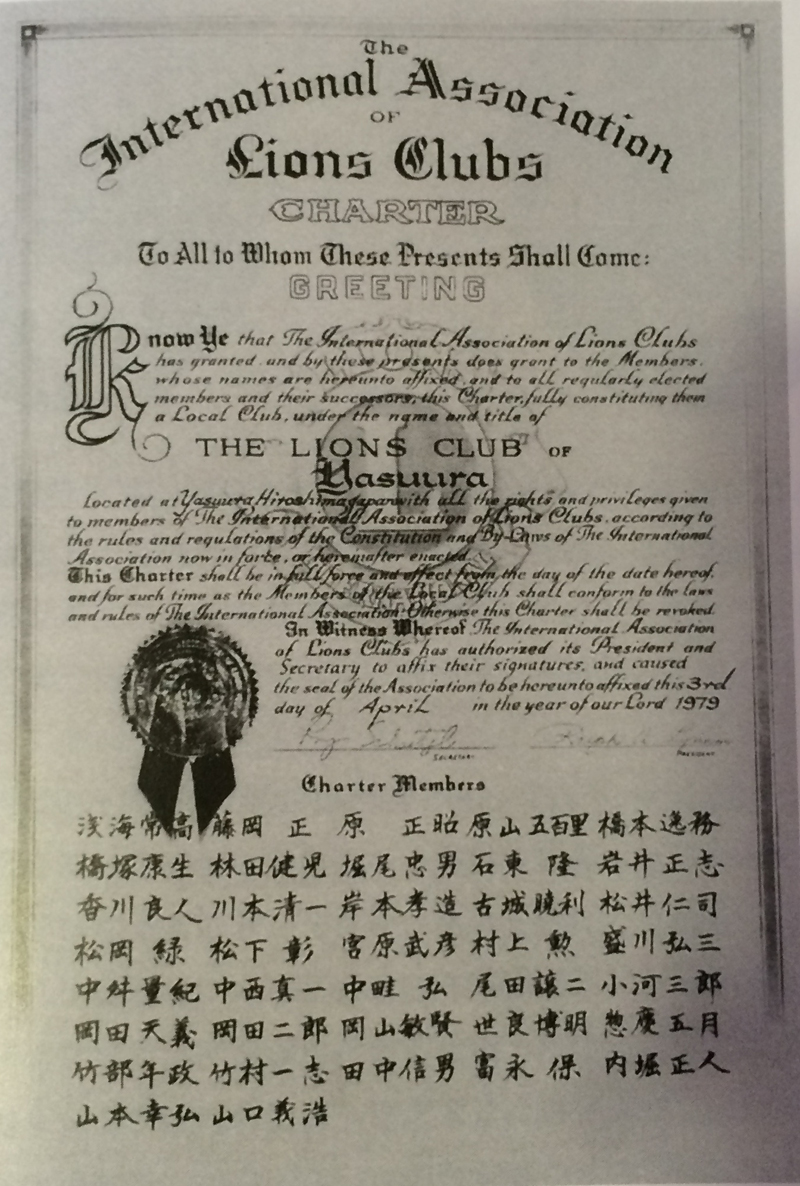 The
International Association
OF
Lions Clubs
CHARTER
To All to Whom These Presents Shall Come:
GREETING
Know Ye that The International Association of Lions Clubs
has granted, and by these presents does grant to the Members,
whose names are hereunto affixed, and to all regularly elected
members and their successors, this Charter, fully constituting them
a Local Club, under the name and title of
THE LIONS CLUB OF
Yasuura
Located at Yasuura Hiroshima Japan with all the rights and privileges given
to members of The International Association of Lions Clubs, according to
the rules and regulations of the Constitution and By-Laws of The International
Association now in force, or hereinafter enacted.
This Charter shall be in full force and effect from the day of the date hereof,
and for such time as the Members of the Local Club shall conform to the laws
and rules of The International Association. Otherwise this Charter shall be revoked.
In Witness Whereof, The International Association
of Lions Clubs has authorized its President and
Secretary to affix their signatures, and caused
the seal of the Association to be hereunto affixed this 3rd
day of April in the year of our Lord 1979
SECRETARY PRESIDENT
Charter Members
浅海常高 藤岡 正 原 正昭 原山五百里 橋本逸務
橋塚康生 林田健児 堀尾忠男 石東 隆 岩井正志
香川良人 川本清一 岸本孝造 古城曉利 松井仁司
松岡 緑 松下 彰 宮原武彦 村上 勲 盛川弘三
量紀 中西真一 中畦 弘 尾田譲二 小河三郎
岡田天義 岡田二郎 岡山敏賢 世良博明 惣慶五月
竹部年政 竹村一志 田中信男 富永 保 内堀正人
山本幸弘 山口義浩